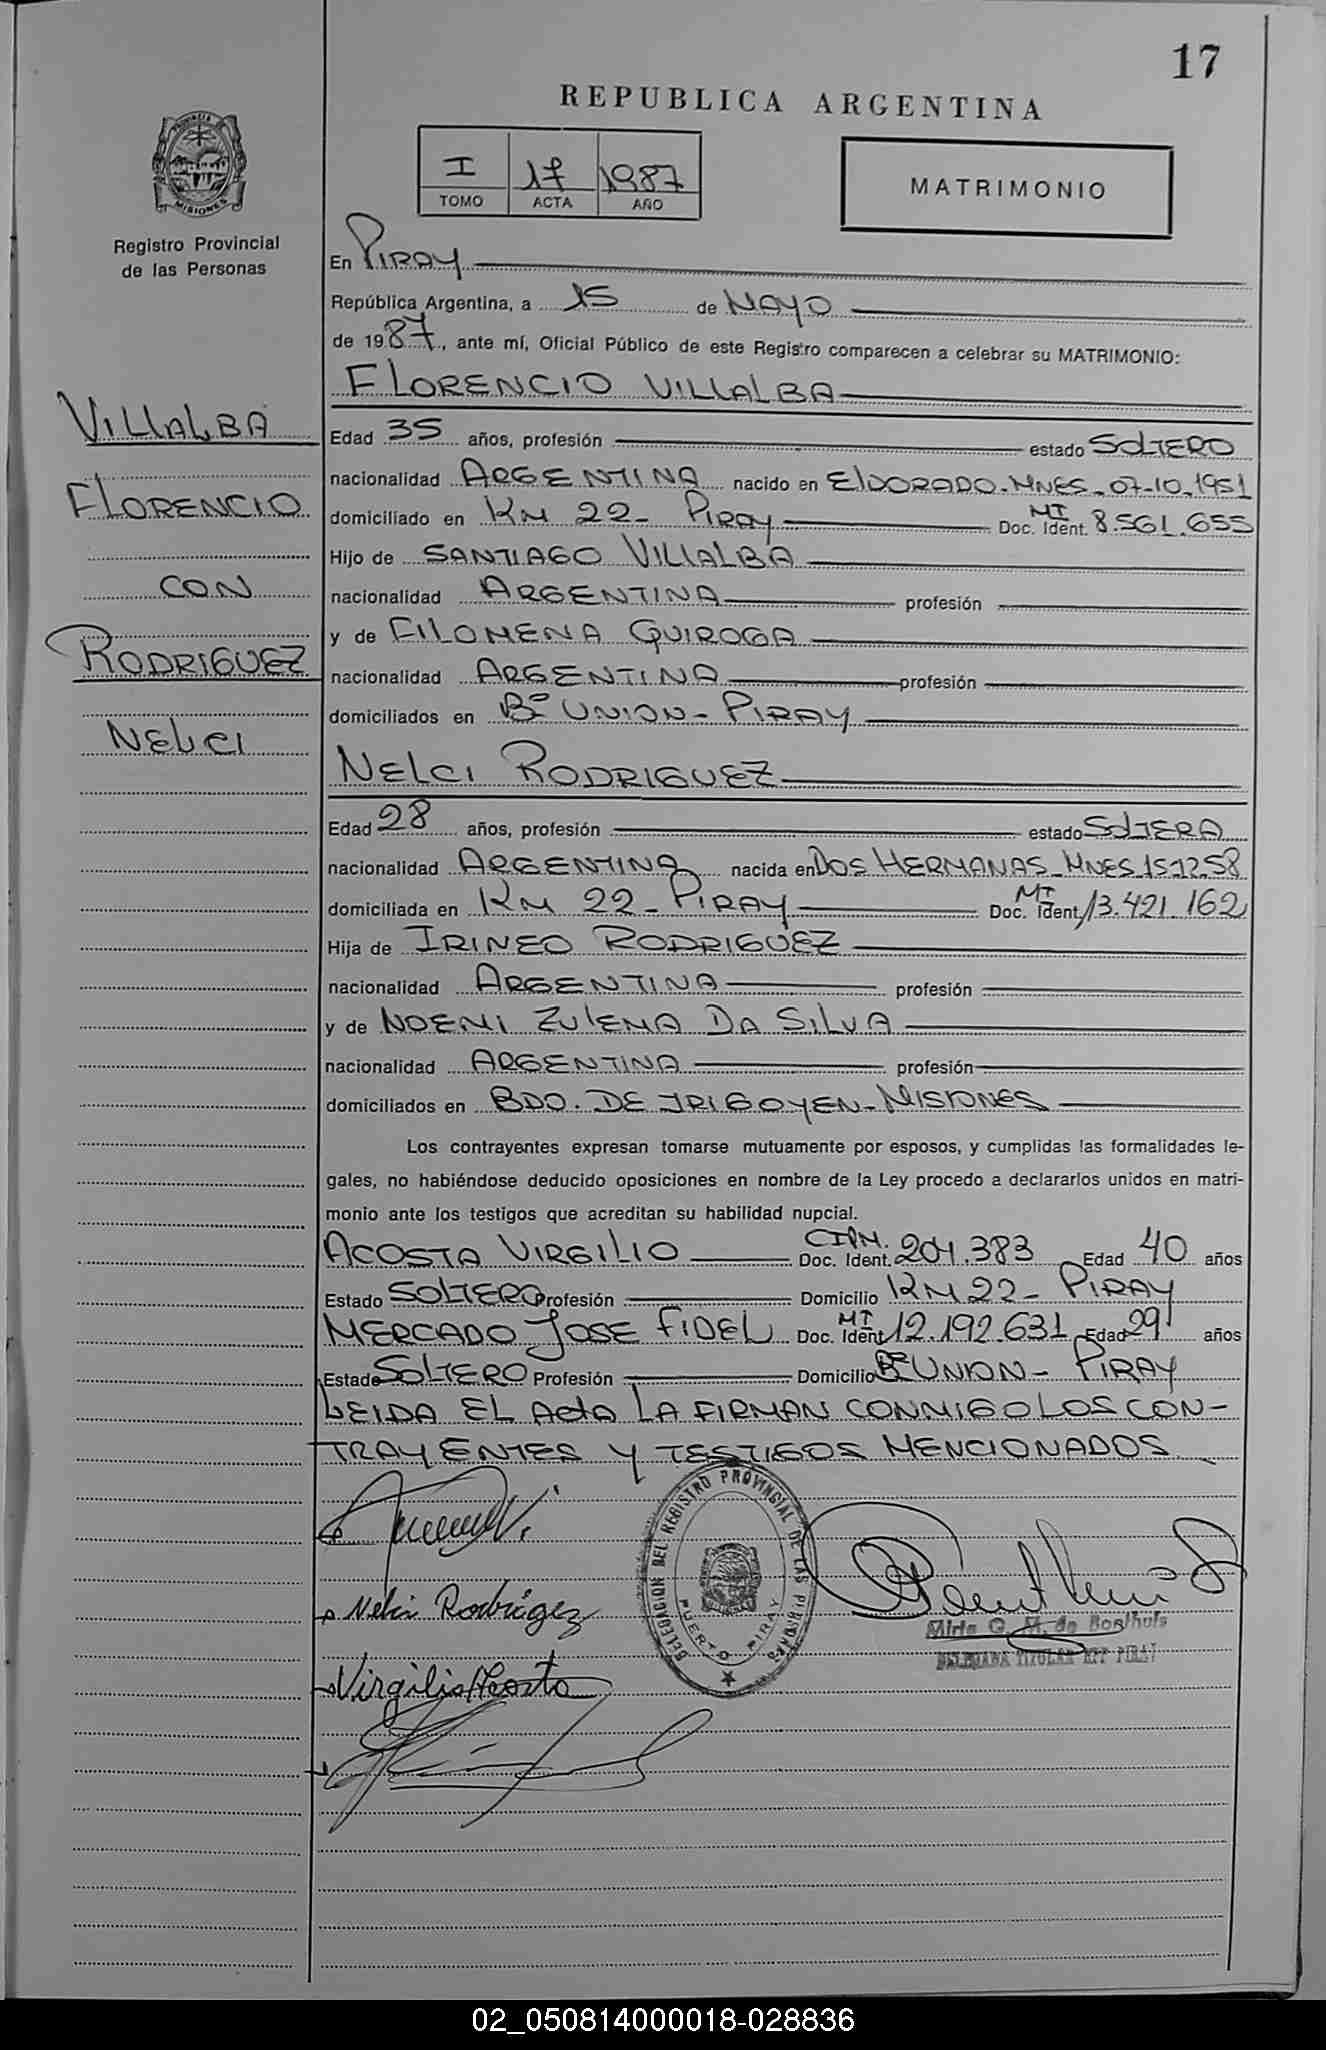 17
REPUBLICA ARGENTINA
I 17 1987
TOMO ACTA AÑO
MATRIMONIO
PROVINCIA DE MISIONES
Registro Provincial
de las Personas
En PIRAY
República Argentina, a 15 de MAYO
de 1987, ante mí, Oficial Público de este Registro comparecen a celebrar su MATRIMONIO:
FLORENCIO VILLALBA
VILLALBA
FLORENCIO
CON
RODRIGUEZ
NELCI
Edad 35 años, profesión estado SOLTERO
nacionalidad ARGENTINA nacido en ELDORADO-MNES-07-10-1951
domiciliado en KM 22- PIRAY Doc. Ident. MI 8.561.655
Hijo de SANTIAGO VILLALBA
nacionalidad ARGENTINA profesión
y de FILOMENA QUIROGA
nacionalidad ARGENTINA profesión
domiciliados en Bº UNION- PIRAY
NELCI RODRIGUEZ
Edad 28 años, profesión estado SOLTERA
nacionalidad ARGENTINA nacida en DOS HERMANAS-MNES-15-12-58
domiciliada en KM 22- PIRAY Doc. Ident. MI 13.421.162
Hija de IRINEO RODRIGUEZ
nacionalidad ARGENTINA profesión
y de NOEMI ZULEMA DA SILVA
nacionalidad ARGENTINA profesión
domiciliados en BDO. DE IRIGOYEN-MISIONES
Los contrayentes expresan tomarse mutuamente por esposos, y cumplidas las formalidades le-
gales, no habiéndose deducido oposiciones en nombre de la Ley procedo a declararlos unidos en matri-
monio ante los testigos que acreditan su habilidad nupcial.
ACOSTA VIRGILIO Doc. Ident. CIPM. 201.383 Edad 40 años
Estado SOLTERO Profesión Domicilio KM 22- PIRAY
MERCADO JOSE FIDEL Doc. Ident. MI 12.192.631 Edad 29 años
Estado SOLTERO Profesión Domicilio Bº UNION- PIRAY
LEIDA EL Acta LA FIRMAN CONMIGO LOS CON-
TRAYENTES Y TESTIGOS MENCIONADOS
DELEGACION DEL REGISTRO PROVINCIAL DE LAS PERSONAS
PUERTO PIRAY
Nelci Rodrigez
Mirta G. M. de Bonthuis
DELEGADA TITULAR RPP PIRAY
Virgilio Acosta
02_050814000018-028836